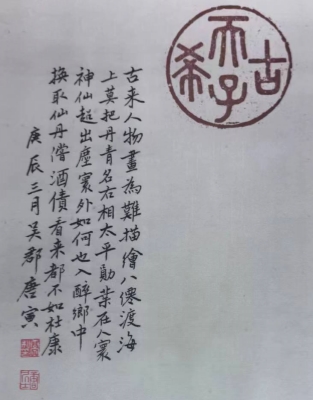 古希天子
古来人物畫為難描繪八僊渡海
上莫把丹青名右相太平勛業在人寰
神仙超出塵寰外如何也入醉鄉中
換取仙丹償酒債看来都不如杜康
庚辰三月吴郡唐寅